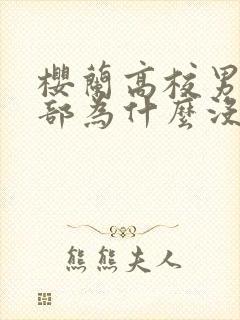 櫻蘭高校男
部為什麼沒
熊熊夫人